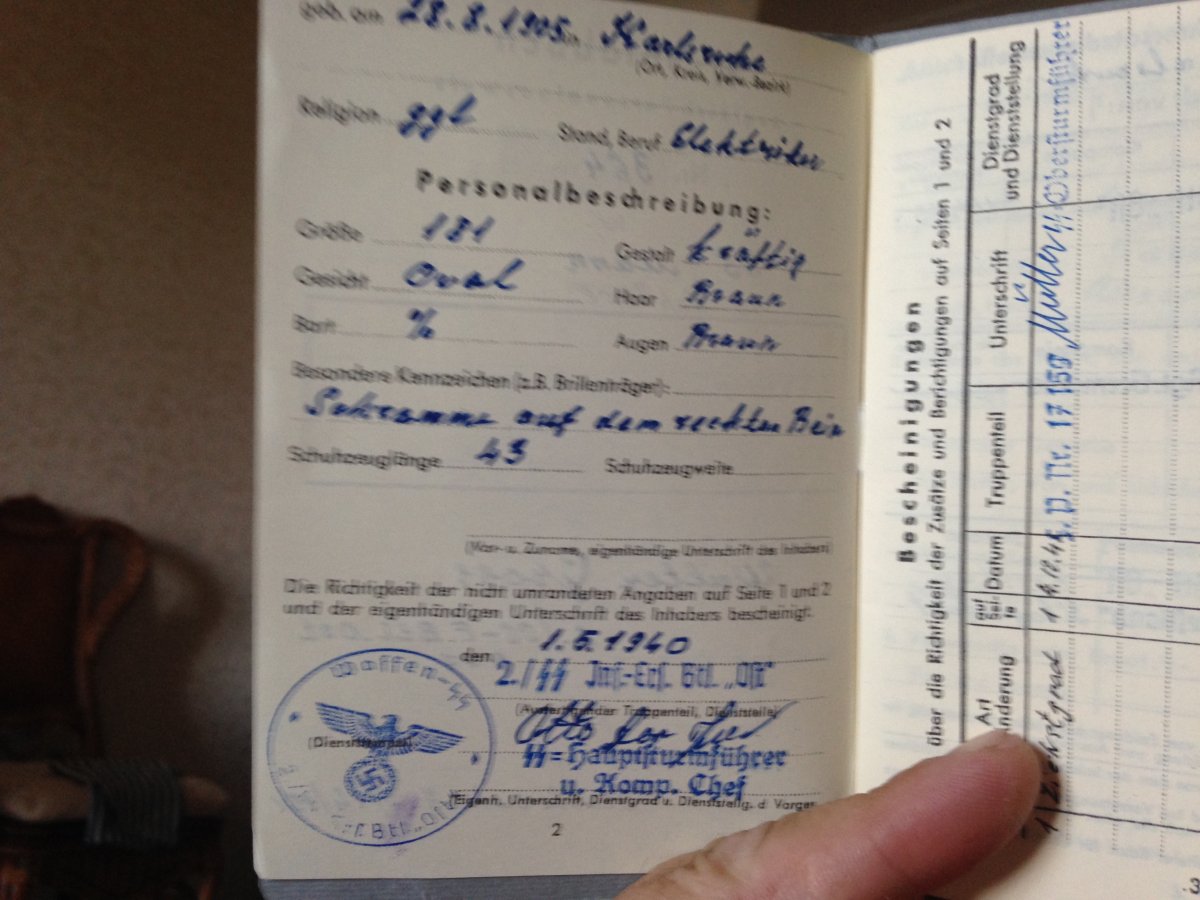 geb. am 28.8.1905. Karlsruhe
(Ort, Kreis, Verw.-Bezirk)
Religion ggl Stand, Beruf Elektriker
Personalbeschreibung:
Größe 181 Gestalt kräftig
Gesicht Oval Haar Braun
Bart % Augen Braun
Besondere Kennzeichen (z.B. Brillenträger):
Schramme auf dem rechten Bein
Schuhzeuglänge 43 Schuhzeugweite
(Vor- u. Zuname, eigenhändige Unterschrift des Inhabers)
Die Richtigkeit der nicht umrandeten Angaben auf Seite 1 und 2
und der eigenhändigen Unterschrift des Inhabers bescheinigt:
den 1.5.1940
2./SS Inf.-Ers. Btl. „Ost"
(Ausfertigender Truppenteil, Dienststelle)
Otto
SS=Hauptsturmführer
u. Komp. Chef
(Eigenh. Unterschrift, Dienstgrad u. Dienststellg. d. Vorges.
Waffen-SS
(Dienststempel)
Btl. „Ost"
2
Bescheinigungen
über die Richtigkeit der Zusätze und Berichtigungen auf Seiten 1 und 2
Art
Änderung
auf
Sei-
te
Datum
Truppenteil
Unterschrift
Dienstgrad
und Dienststellung
Dienstgrad 1 P. Nr. 17159 Müller Obersturmführer
3